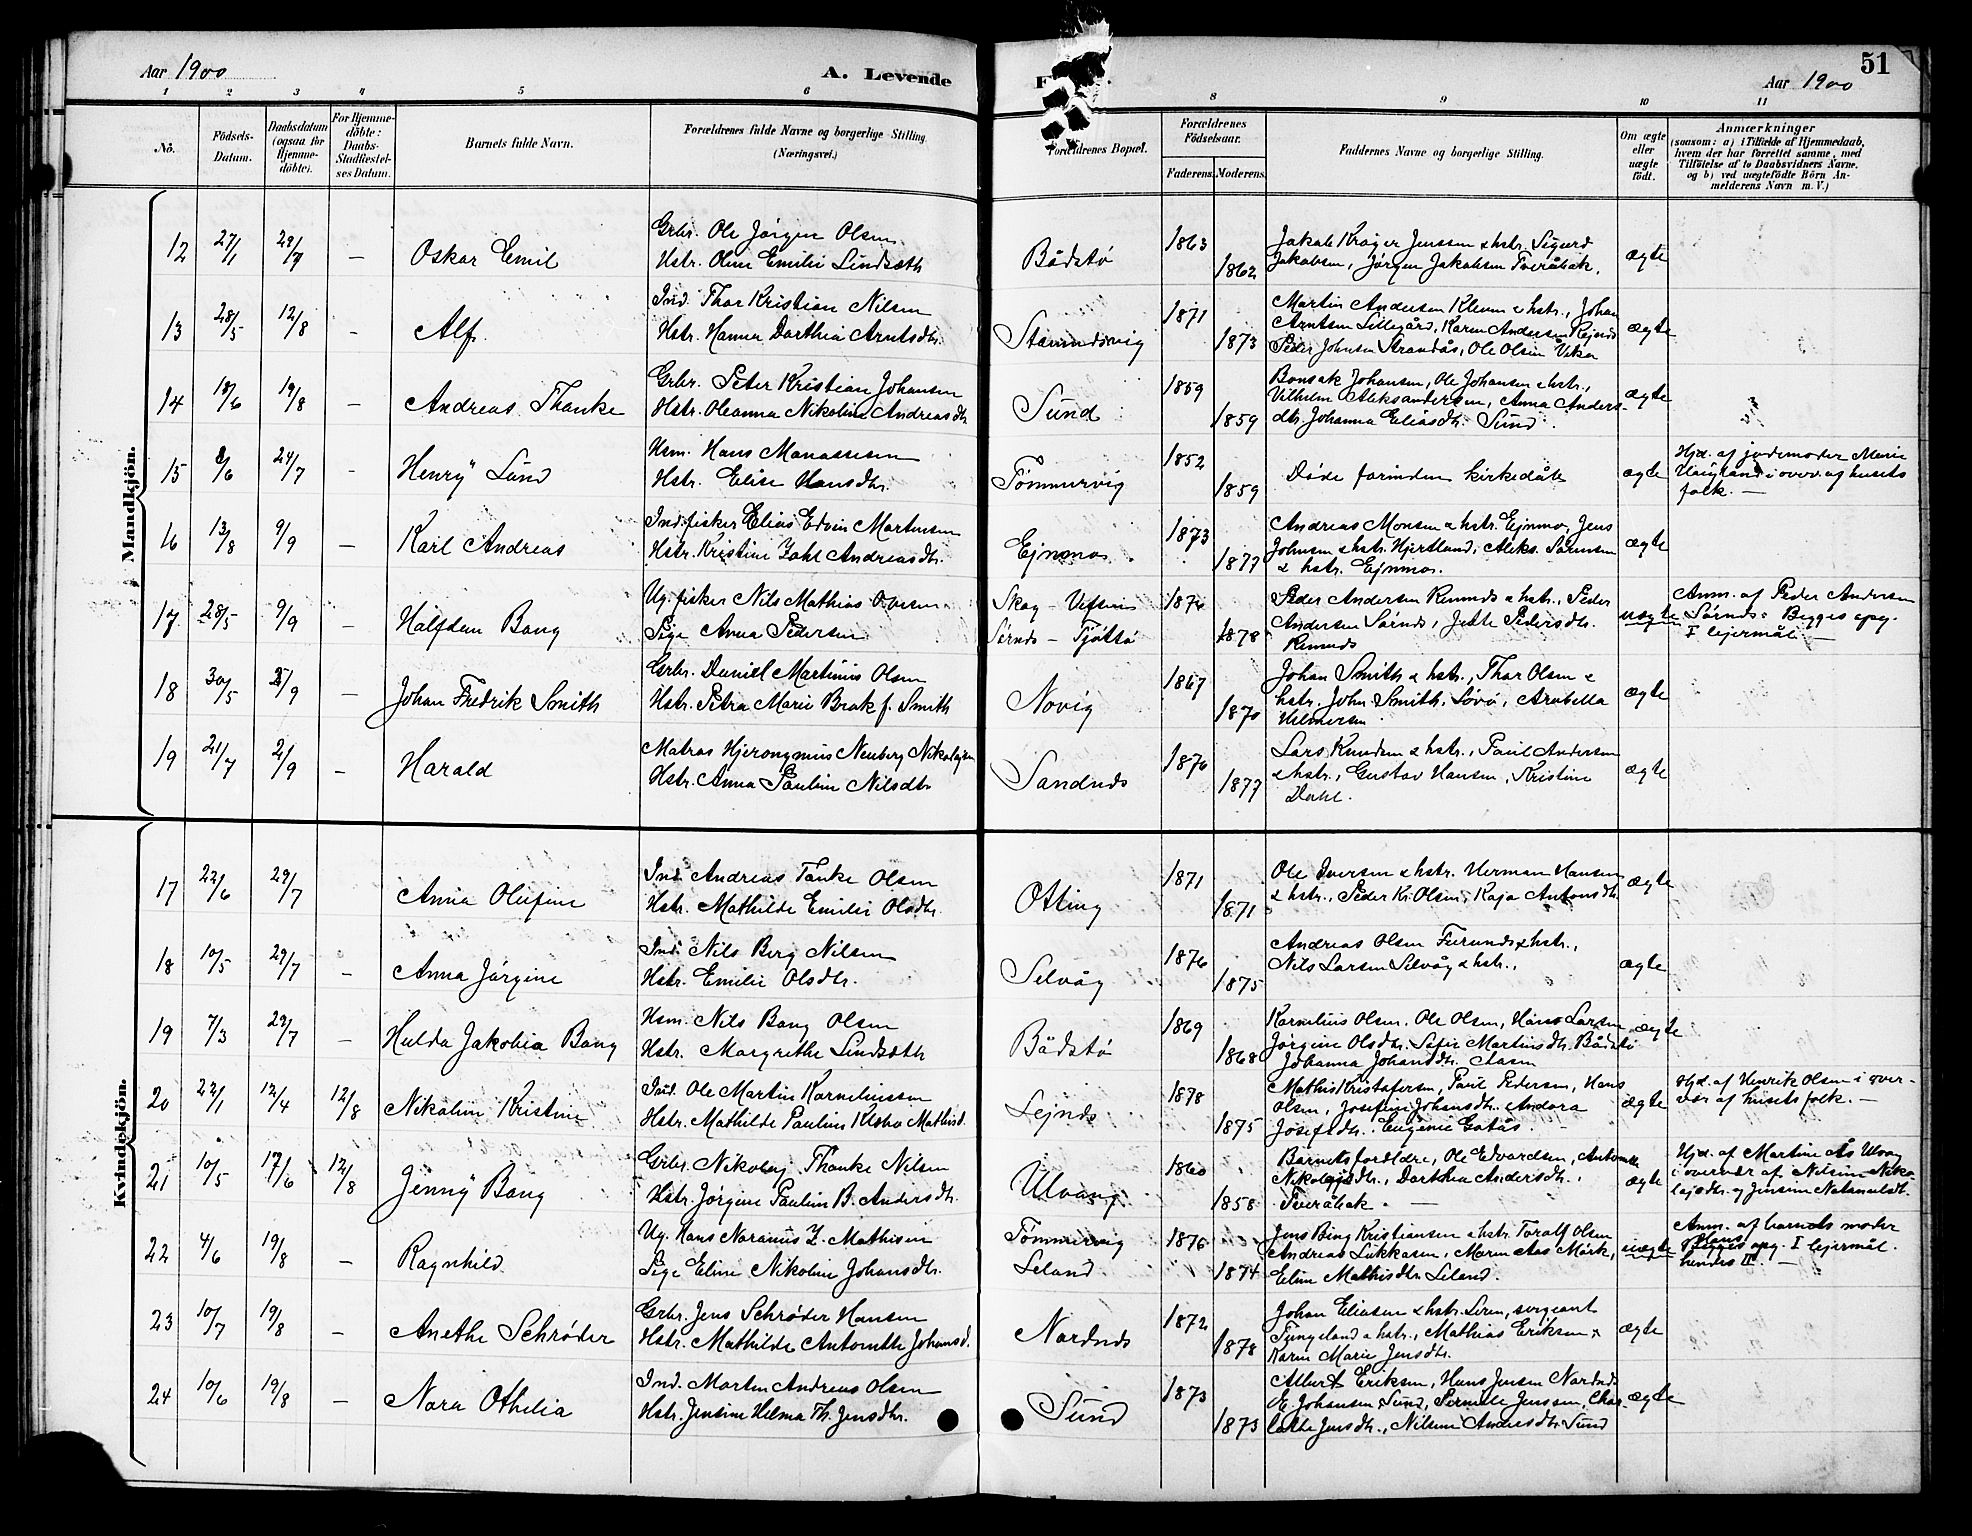 Aar 1900
A. Levende
F
Aar 1900
51
1 2 3 4 5 6 8 9 10 11
No.
Födsels-Datum.
Daabsdatum (ogsaa for Hjemme-döbte).
For Hjemme-döbte: Daabs-Stadfæstel-ses Datum.
Barnets fulde Navn.
Forældrenes fulde Navne og borgerlige Stilling.
(Næringsvei.)
Forældrenes Bopæl.
Forældrenes Födselsaar.
Faderens. Moderens.
Faddernes Navne og borgerlige Stilling.
Om ægte eller uægte födt.
Anmærkninger
(saasom: a) i Tilfælde af Hjemmedaab, hvem der har forrettet samme, med Tilföielse af to Daabsvidners Navne, og b) ved uægtefödte Börn An-melderens Navn m. V.)
Mandkjön.
12 27/1 29/7 — Oskar Emil
Grbr. Ole Jörgen Olsen
Hstr. Oline Emilie Lindsæth
Bådstö 1863 1862
Jakob Kröger Jenssen & hstr. Sigurd
Jakobsen, Jörgen Jakobsen Tveråbak.
ægte
13 28/5 12/8 - Alf.
Ind. Thor Kristian Nilsen
Hstr. Hanna Dorthea Arntsdtr.
Stamndsvig 1871 1873
Martin Andersen Klevm & hstr., Johan
Arntsen Lillegård, Karen Andersen
Peder Johnsen Strandås, Ole Olsen
ægte
14 18/6 19/8 — Andreas Thanke
Grbr. Peter Kristian Johansen
Hstr. Oleanna Nikoline Andreasdtr
Sund 1859 1859
Bonsak Johansen, Ole Johansen & hstr.,
Vilhelm Aleksandersen, Anna Anders-
dtr. Johanna Eliasdtr. Sund.
ægte
15 8/6 24/7 - Henry Lund
Hsm. Hans Manassesen
Hstr. Elise Hansdtr.
Tömmervig 1852 1859
Döde forinden kirkedåb
ægte
Hjd. af jordemoder Marie
Haugland i overv. af husets
folk. —
16 13/8 9/9 — Karl Andreas
Ind. fisker Elias Edvin Martinsen
Hstr. Kristine Zahl Andreasdtr.
Ejnmo. 1873 1877
Andreas Monsen & hstr. Ejnmo, Jens
Johnsen & hstr. Hjertland, Aleks. Sörensen
& hstr. Ejnmo.
ægte
17 28/5 9/9 — Halfdan Bang
Ug. fisker Nils Mathias Olsen
Pige Anna Pedersen
Skog - Vefsen 1876
Sörnds - Tjöttö 1878
Peder Andersen Remnds & hstr., Peder
Andersen Sörnds, Jette Pedersdtr.
Remnds
uægte
Anm. af Peder Andersen
Sörnds. Begges opg.
I lejermål. —
18 30/5 2/9 — Johan Fredrik Smith
Grbr. Daniel Martinus Olsen
Hstr. Petra Marie Brok f. Smith
Novig 1867 1870
Johan Smith & hstr., Thor Olsen &
hstr. John Smith, Lövö, Arabella
Hilmersen
ægte
19 21/7 2/9 — Harald
Matros Hjeronymus Neuberg Nikolajsen
Hstr. Anna Pauline Nilsdtr
Sandnds 1876 1877
Lars Knudsen & hstr., Paul Andersen
& hstr., Gustav Hansen, Kristine
Dahl.
ægte
Kvindekjön.
17 22/6 29/7 Anna Olufine
Ind. Andreas Tanke Olsen
Hstr. Mathilde Emilie Olsdtr.
Otting 1871 1871
Ole Iversen & hstr. Herman Hansen
& hstr., Peder Kr. Olsen, Kaja Antonsdtr.
ægte
18 10/5 29/7 - Anna Jörgine
Ind. Nils Berg Nilsen
Hstr. Emilie Olsdtr.
Selvåg 1876 1875
Andreas Olsen Furunds & hstr.,
Nils Larsen Selvåg & hstr.,
ægte
19 7/3 29/7 - Hulda Jakobia Bang
Hsm. Nils Bang Olsen
Hstr. Margrethe Lindsæth
Bådstö 1869 1868
Kornelius Olsen, Ole Olsen, Hans Larsen
Jörgine Olsdtr. Martinsdtr. Bådstö
Johanna Johansdtr.
ægte
20 22/1 12/4 12/8 Nikoline Kristine
Ind. Ole Martin Korneliussen
Hstr. Mathilde Pauline Mathisd.
Lejnds 1878 1875
Mathis Kristofersen, Paul Pedersen, Hans
Olsen, Josefine Johansdtr. Andora
Josefsdtr. Eugenie Gotås.
ægte
Hjd. af Henrik Olsen i over-
vær af husets folk. —
21 10/5 17/6 12/8 Jenny Bang
Grbr. Nikolaj Thanke Nilsen
Hstr. Jörgine Pauline B. Andersdtr.
Ulvang 1860 1858
Barnets forældre, Ole Edvardsen, Antonette
Nikolajsdtr., Dorthea Andersdtr.,
Tveråbak. —
ægte
Hjd. af Martine Ås Ulvang
i overvær af Nilsine Niko-
lajsdtr. og Jensine Natanaelsdtr.
22 4/6 19/8 - Ragnhild
Ug. Hans Noranus Z. Mathisen
Pige Eline Nikoline Johansdtr.
Tömmervig 1876
Leland 1874
Jens Bing Kristiansen & hstr. Toralf Olsen
Andreas Lukkasen, Maren Aas Mörk,
Eline Mathisdtr. Leland.
uægte
Anm. af barnets moder
Hans opg. I lejermål.
hendes II. —
23 10/7 19/8 - Anethe Schröder
Grbr. Jens Schröder Hansen
Hstr. Mathilde Antonette Johansd.
Nordnds 1872 1878
Johan Eliasen & hstr. Leren, sergeant
Tungeland & hstr., Mathias Eriksen &
Karen Marie Jensdtr.
ægte
24 10/6 19/8 — Nora Othelia
Ind. Morten Andreas Olsen
Hstr. Jensine Helma Th. Jensdtr.
Sund 1873 1873
Albert Eriksen, Hans Jensen Nordnds
E. Johansen Sund, Pernille Jenssen, Char-
lotte Jensdtr., Nilsine Andersdtr. Sund
ægte